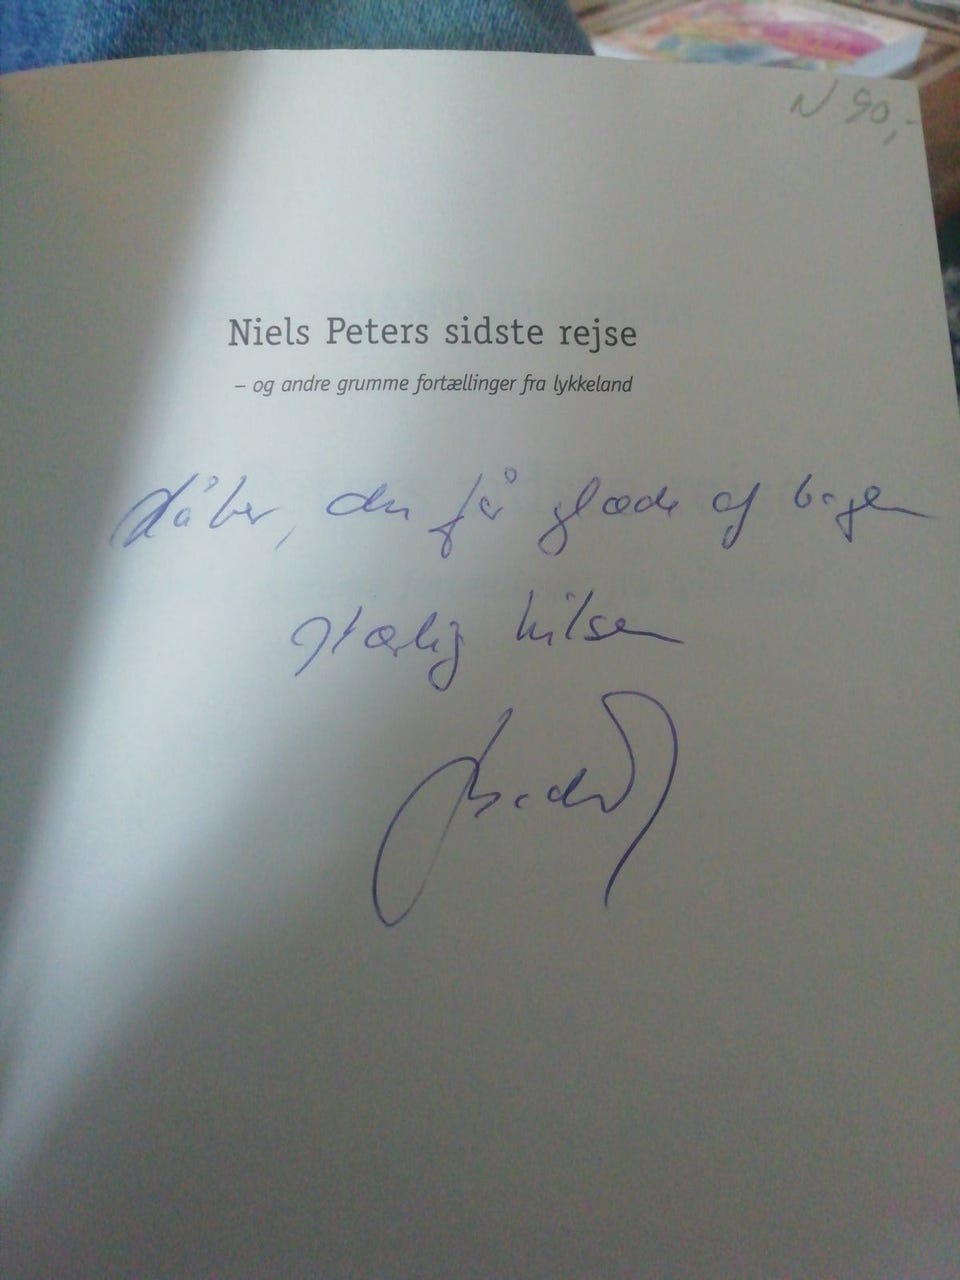 N 90,-
Niels Peters sidste rejse
– og andre grumme fortællinger fra lykkeland
Håber, du får glæde af bogen
Kærlig hilsen